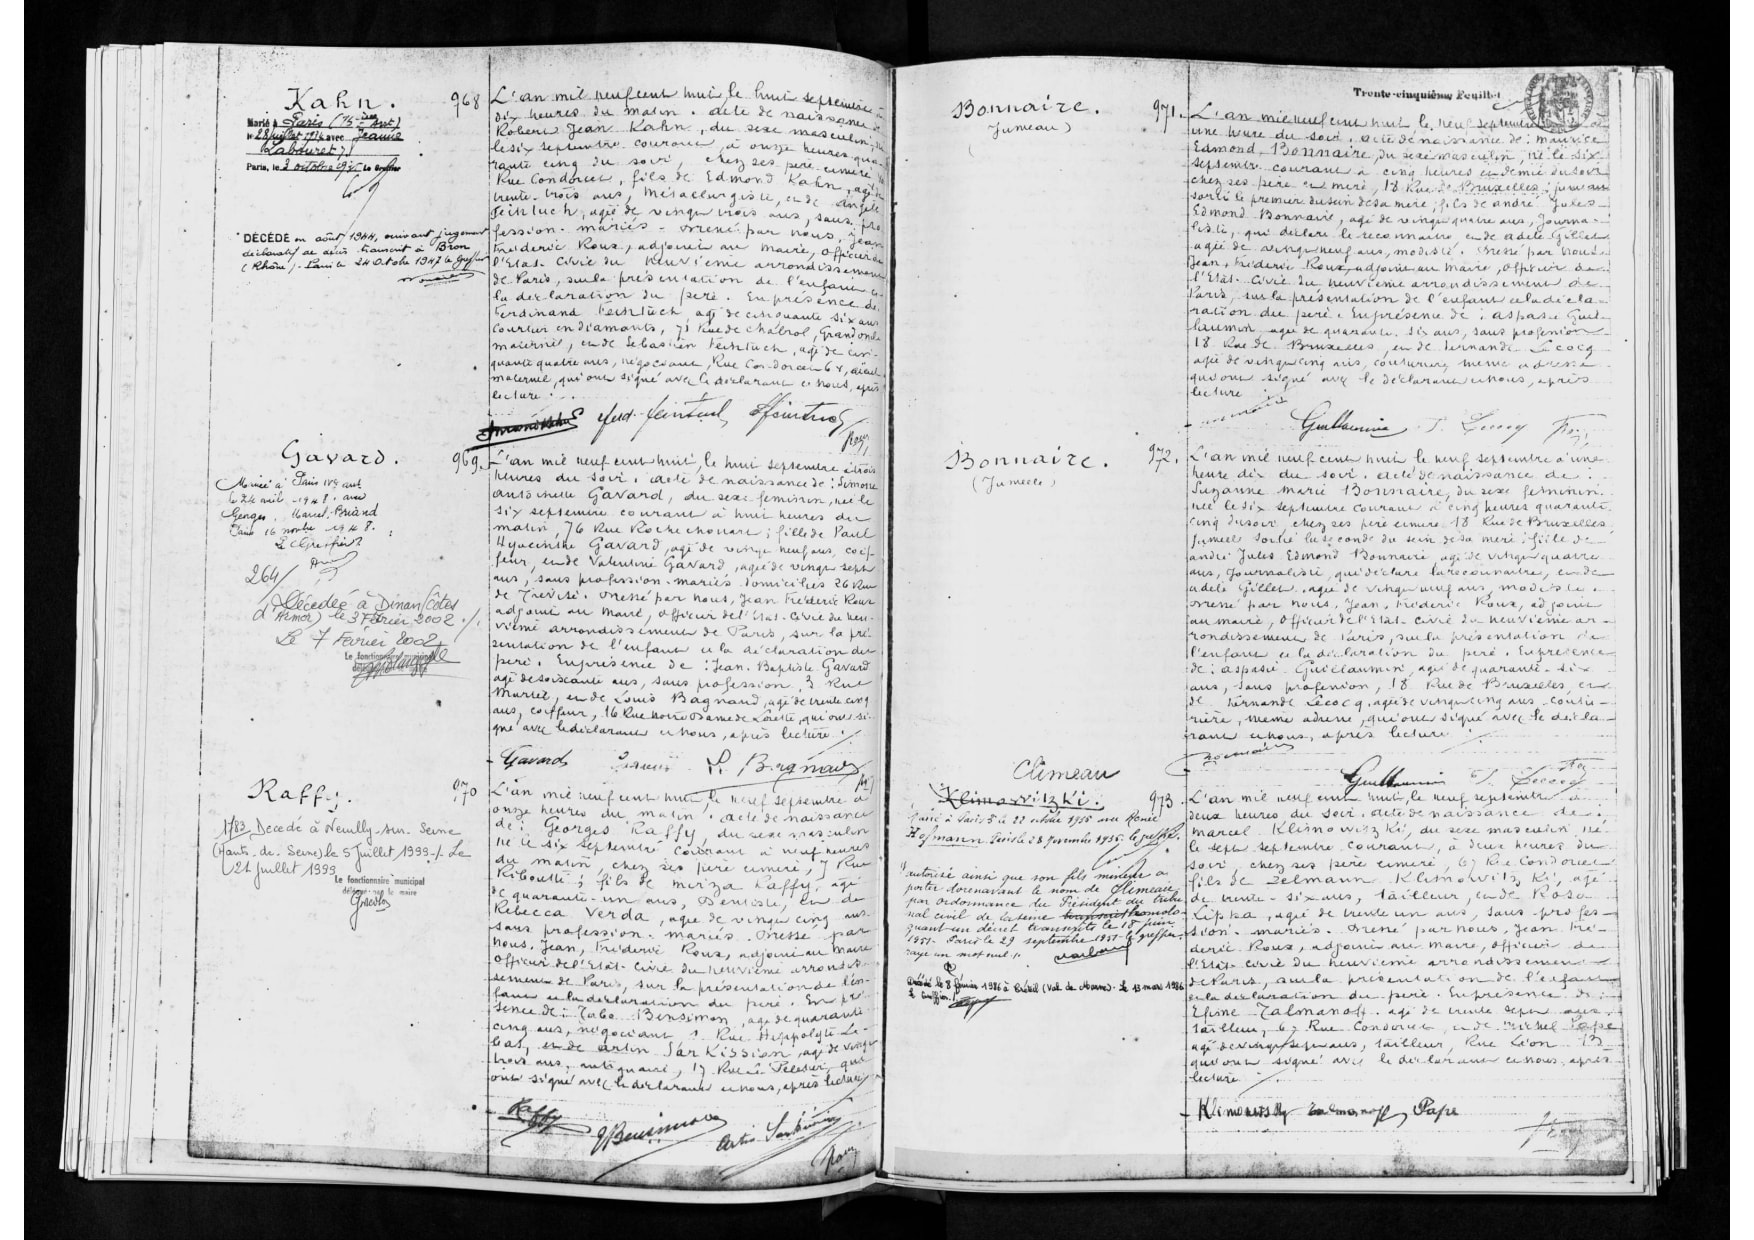 Kahn.
Marié à Paris (15
le 28 juillet 1914 avec Jeanne
Labouret
Paris, le 2 octobre Le Greffier
DÉCÉDÉ en août 1944, suivant jugement
déclaratif de décès transcrit à Bron
(Rhône) - Paris le 24 Octobre 1947 le Greffier
968
L'an mil neuf cent huit le huit septembre à
dix heures du matin. acte de naissance de
Robert Jean Kahn, du sexe masculin,
le six septembre courant, à onze heures qua-
rante cinq du soir, chez ses père et mère
Rue Condorcet, fils de Edmond Kahn, agé
trente trois ans, Métallurgiste, et de Angèle
Feintuch, agée de vingt trois ans, sans pro
fession. mariés. Dressé par nous, Jean
Frédéric Roux, adjoint au maire, officier de
l'Etat-Civil du neuvième arrondissement
de Paris, sur la présentation de l'enfant et
la déclaration du père. En présence de:
Ferdinand Feintuch, agé de cinquante six ans
Courtier en Diamants, 71 Rue de Chabrol, Grand oncle
maternel, et de Sébastien Feintuch, agé de cin-
quante quatre ans, négociant, Rue Condorcet 64, aïeul
maternel, qui ont signé avec le déclarant et nous, après
lecture.
Gavard.
Mariée à Paris IVe arrt
le 24 avril 1948. avec
Georges Marcel Briand
Paris 16 novbre 1948.
Le Greffier
264/
Décédée à Dinan (Côtes
d'Armor) le 3 Février 2002./.
Le 7 Février 2002
Le fonctionnaire municipal
969.
L'an mil neuf cent huit, le huit septembre à trois
heures du soir. acte de naissance de: Simone
antoinette Gavard, du sexe féminin, née le
six septembre courant à huit heures du
matin, 76 Rue Rochechouart; fille de Paul
Hyacinthe Gavard, agé de vingt neuf ans, coif-
feur, et de Valentine Gavard, agée de vingt sept
ans, sans profession. mariés. domiciliés 26 Rue
de Trévise. Dressé par nous, Jean Frédéric Roux
adjoint au maire, officier de l'Etat-Civil du neu-
vième arrondissement de Paris, sur la pré-
sentation de l'enfant et la déclaration du
père. En présence de: Jean-Baptiste Gavard
agé de soixante ans, sans profession, 3 Rue
Muriel, et de Louis Bagnaud, agé de trente cinq
ans, coiffeur, 16 Rue Notre Dame de Lorette, qui ont si-
gné avec le déclarant et nous, après lecture.
Gavard
Raffy.
1783 Décédé à Neuilly-sur-Seine
(Hauts-de-Seine) le 5 juillet 1999./. Le
21 juillet 1999
Le fonctionnaire municipal
délégué par le maire
970
L'an mil neuf cent huit, le neuf septembre à
onze heures du matin. acte de naissance
de: Georges Raffy, du sexe masculin
né le six septembre courant à neuf heures
du matin, chez ses père et mère, 7 Rue
Riboutté; fils de Mirza Raffy, agé
de quarante-un ans, Dentiste, et de
Rebecca Verda, agée de vingt cinq ans
sans profession. mariés. Dressé par
nous, Jean, Frédéric Roux, adjoint au Maire
officier de l'Etat-Civil du neuvième arrondis-
sement de Paris, sur la présentation de l'en-
fant et la déclaration du père. En pré-
sence de: Bensimon, agé de quarante
cinq ans, négociant, 1 Rue Hippolyte Le-
bas, et de Artin Sarkission, agé de vingt
trois ans, antiquaire, 17 Rue Le Peletier, qui
ont signé avec le déclarant et nous, après lecture
Raffy Bensimon
Trente-cinquième Feuillet
Bonnaire.
(Jumeau)
971.
L'an mil neuf cent huit le neuf septembre à
une heure du soir. acte de naissance de: Maurice
Edmond Bonnaire, du sexe masculin, né le six
septembre courant à cinq heures et demie du soir
chez ses père et mère, 18 Rue de Bruxelles; jumeau
sorti le premier du sein de sa mère; fils de André Jules
Edmond Bonnaire, agé de vingt quatre ans, Journa-
liste, qui déclare le reconnaître, et de Adèle Gillet
agée de vingt neuf ans, modiste. Dressé par nous
Jean, Frédéric Roux, adjoint au Maire, officier de
l'Etat-Civil du neuvième arrondissement de
Paris, sur la présentation de l'enfant et la décla-
ration du père. En présence de: aspasie Guil-
laumin, agée de quarante six ans, sans profession
18 Rue de Bruxelles, et de Fernande Lecocq
agée de vingt cinq ans, couturière, même adresse
qui ont signé avec le déclarant et nous, après
lecture
Bonnaire.
(Jumelle)
972.
L'an mil neuf cent huit le neuf septembre à une
heure dix du soir. acte de naissance de:
Suzanne Marie Bonnaire, du sexe féminin.
née le six septembre courant à cinq heures quarante
cinq du soir, chez ses père et mère 18 Rue de Bruxelles
Jumelle sortie la seconde du sein de sa mère; fille de
André Jules Edmond Bonnaire agé de vingt quatre
ans, Journaliste, qui déclare la reconnaître, et de
Adèle Gillet, agée de vingt neuf ans, modiste.
Dressé par nous, Jean, Frédéric Roux, adjoint
au maire, officier de l'Etat-Civil du neuvième ar-
rondissement de Paris, sur la présentation de
l'enfant et la déclaration du père. En présence
de: aspasie Guillaumin, agée de quarante-six
ans, sans profession, 18 Rue de Bruxelles, et
de Fernande Lecocq, agée de vingt cinq ans, coutu-
rière, même adresse, qui ont signé avec le décla-
rant et nous, après lecture.
Climeau
Klimowitzki.
Marié à Paris 5e le 22 octobre 1955 avec Renée
Hofmann Paris le 28 Novembre 1955. le greffier.
autorisé ainsi que son fils mineur à
porter dorénavant le nom de Climeau
par ordonnance du Président du tribu-
nal civil de la Seine transcrit homolo-
guant un décret transcrits le 18 juin
1951. Paris le 29 septembre 1951. le greffier
rayé un mot nul./.
Décédé le 8 février 1986 à Créteil (Val de Marne). Le 13 mars 1986
Le Greffier.
973.
L'an mil neuf cent huit, le neuf septembre à
deux heures du soir. acte de naissance de:
Marcel Klimowitzki, du sexe masculin, né
le sept septembre courant, à deux heures du
soir, chez ses père et mère, 67 Rue Condorcet
fils de Zelmann Klimowitzki, agé
de trente-six ans, tailleur, et de Rosa
Lipka, agée de trente un ans, sans profes-
sion. mariés. Dressé par nous, Jean Fré-
déric Roux, adjoint au Maire, officier de
l'Etat-Civil du neuvième arrondissement
de Paris, sur la présentation de l'enfant
et la déclaration du père. En présence de:
Efime Talmanoff, agé de trente sept ans
tailleur, 67 Rue Condorcet, et de Michel Pape
agé de vingt sept ans, tailleur, Rue Léon 13
qui ont signé avec le déclarant et nous après
lecture
Talmanoff Pape